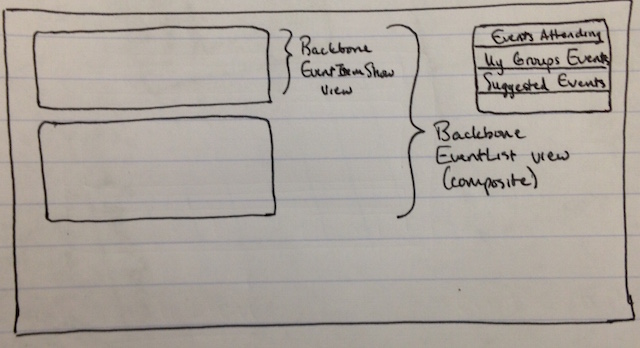 Backbone
EventItemShow
view
Backbone
EventList view
(composite)
Events Attending
My Groups Events
Suggested Events